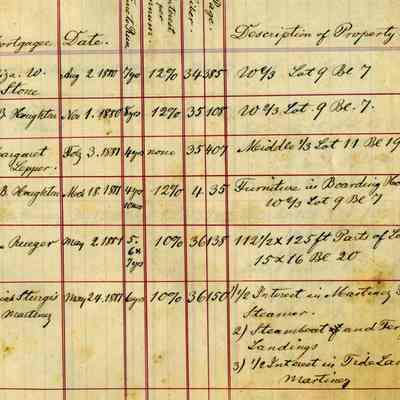 Mortgagee Date. Time to Run Interest per Annum. Liber. Page. Description of Property
Eliza. W. Stone Aug 2. 1880 7yo 12% 34 385 W 2/3 Lot 9 Bl 7
B Houghton Nov 1. 1880 8yrs 12% 35 108 W 2/3 Lot. 9 Bl. 7.
Margaret Lepper. Feb 3. 1881 4yrs none 35 407 Middle 1/3 Lot 11 Bl 19
B. Houghton Mch 18. 1881 4yrs 10mos 12% 4 35 Furniture in Boarding
W 2/3 Lot 9 Bl 7
Rueger May 2. 1881 5. 6 & 7yrs 10% 36 138 112 1/2 x 125 ft Part of
15 x 16 Bl 20
Sturgis Martinez May 24. 1881 6yrs 10% 36 150 1) 1/2 Interest in Martinez
Steamer.
2) Steamboat and
Landings
3) 1/2 Interest in Tide
Martinez